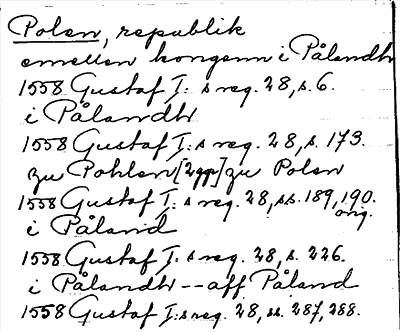 Polen, republik
emellan kongenn i Pålandh
1558 Gustaf I:s reg. 28, s. 6.
i Pålandh
1558 Gustaf I:s reg. 28, s. 173.
zu Pohlen [2ggr] zu Polen
1558 Gustaf I:s reg. 28, ss. 189, 190.
orig.
i Påland
1558 Gustaf I:s reg. 28, s. 226.
i Pålandh -- aff Påland
1558 Gustaf I:s reg. 28, ss. 287, 288.